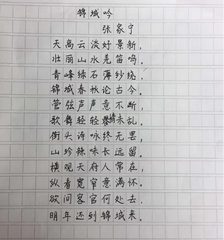 锦城吟
张家宁
天高云淡好景新，
壮丽山水羌笛鸣，
青峰绿石薄纱绕，
锦城春秋论古今，
管弦声声意不断，
歌舞轻轻情未乱，
街头诗咏终无罢，
山珍辣味长远留，
横观天府人常在，
纵看宽窄意满怀，
欲问客官何处去，
明年还到锦城来。